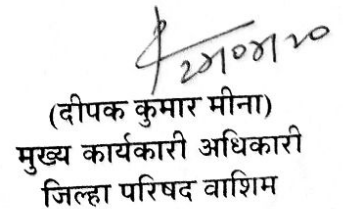 (दीपक कुमार मीना)
मुख्य कार्यकारी अधिकारी
जिल्हा परिषद वाशिम